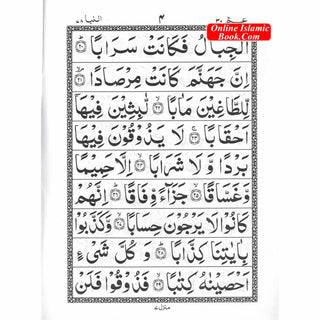 Online Islamic
Book.Com
عمّ ٣٠
۴
النبا ٧٨
الْجِبَالُ فَكَانَتْ سَرَابًا ﴿٢٠﴾
اِنَّ جَهَنَّمَ كَانَتْ مِرْصَادًا ﴿٢١﴾
لِّلطَّاغِيْنَ مَاٰبًا ﴿٢٢﴾ لّٰبِثِيْنَ فِيْهَاۤ
اَحْقَابًا ﴿٢٣﴾ لَا يَذُوْقُوْنَ فِيْهَا
بَرْدًا وَّ لَا شَرَابًا ﴿٢٤﴾ اِلَّا حَمِيْمًا
وَّ غَسَّاقًا ﴿٢٥﴾ جَزَآءً وِّفَاقًا ﴿٢٦﴾ اِنَّهُمْ
كَانُوْا لَا يَرْجُوْنَ حِسَابًا ﴿٢٧﴾ وَّ كَذَّبُوْا
بِاٰيٰتِنَا كِذَّابًا ﴿٢٨﴾ وَ كُلَّ شَیْءٍ
اَحْصَيْنٰهُ كِتٰبًا ﴿٢٩﴾ فَذُوْقُوْا فَلَنْ
منزل ٧